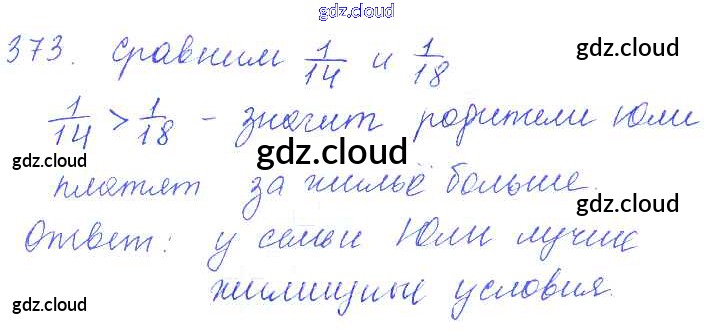 gdz.cloud
gdz.cloud
373. Сравним 1/14 и 1/18
gdz.cloud
1/14 > 1/18 - значит родители Юли
gdz.cloud
gdz.cloud
платят за жильё больше.
gdz.cloud
Ответ: у семьи Юли лучше
жилищные условия.
gdz.cloud
gdz.cloud